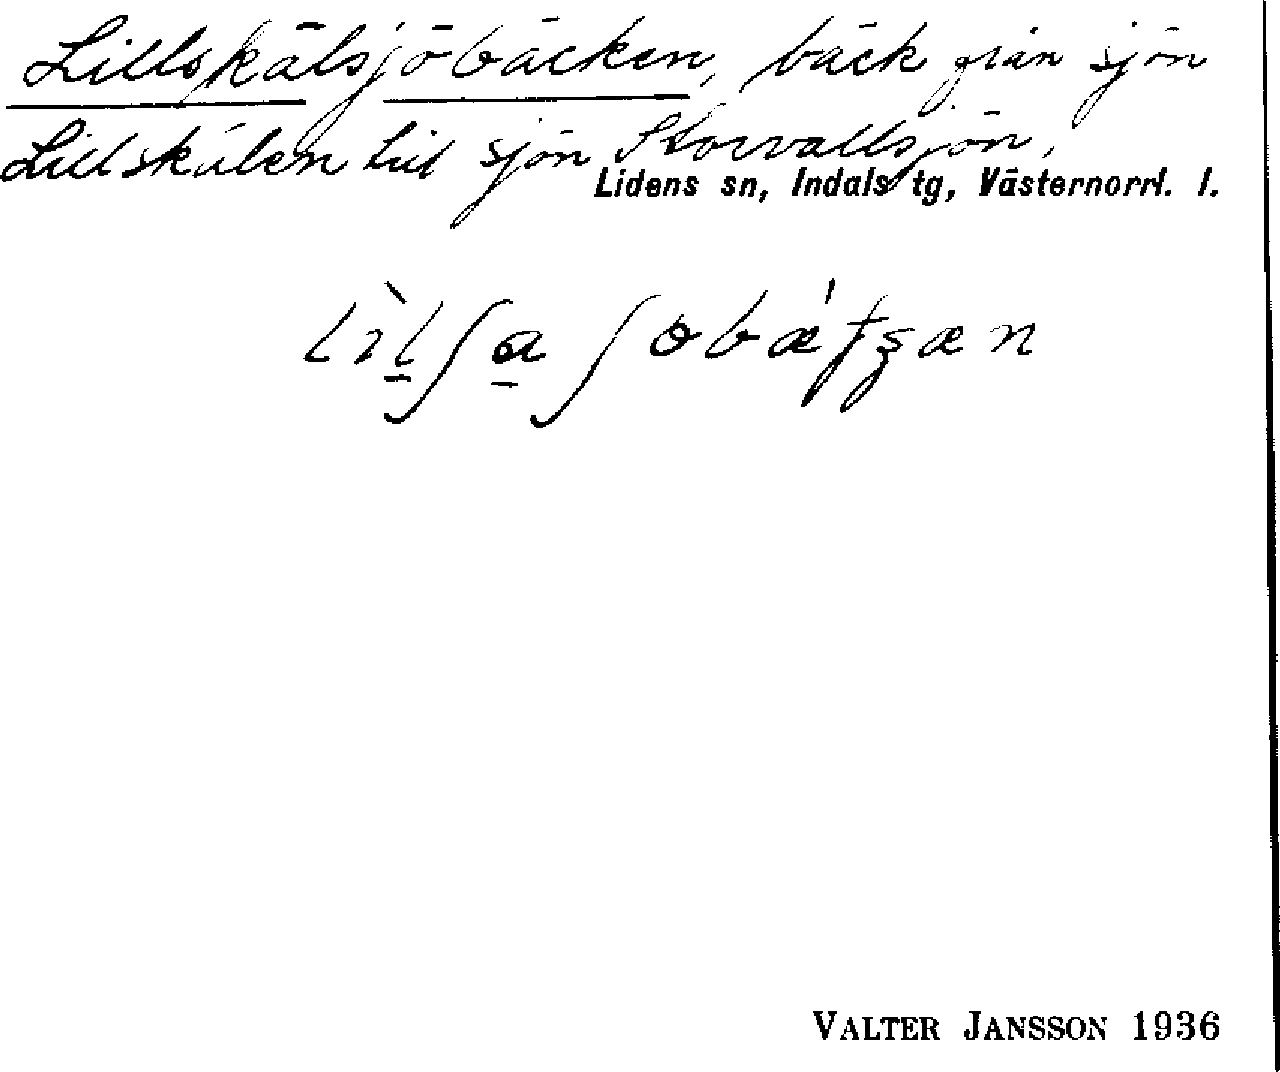 Lillskälsjöbäcken, bäck från sjön
Lillskälen till sjön Storvallsjön,
Lidens sn, Indals tg, Västernorrl. l.
VALTER JANSSON 1936